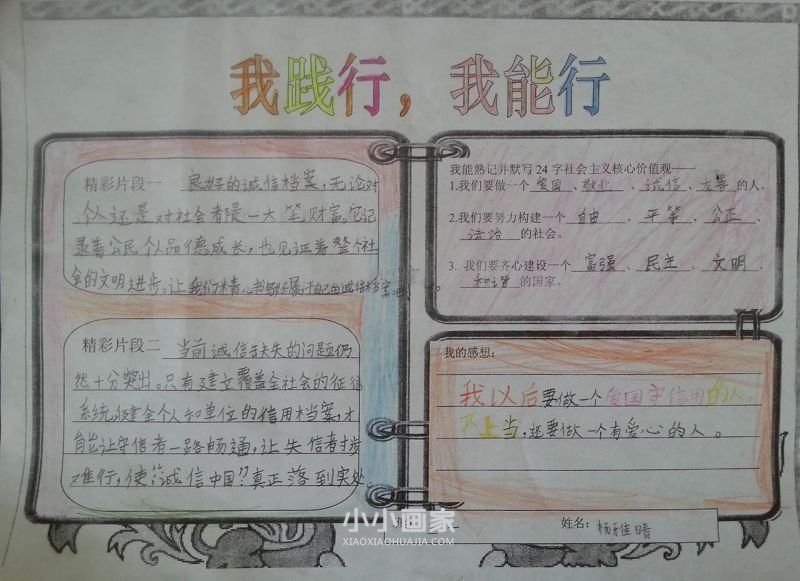 我践行，我能行
精彩片段一 良好的诚信档案，无论对
个人还是对社会者是一大笔财富。它记
录着公民个品德成长，也见证着整个社
会的文明进步。让我们用青心书写好属于自己的诚信档案吧。
精彩片段二 当前诚信缺失的问题仍
然十分突出。只有建立覆盖全社会的征信
系统，建全个人和单位的信用档案，才
能让守信者一路畅通，让失信者寸步
难行，使“诚信中国”真正落到实处
我能熟记并默写24字社会主义核心价值观——
1.我们要做一个 爱国、敬业、诚信、友善 的人。
2.我们要努力构建一个 自由、平等、公正、
法治 的社会。
3. 我们要齐心建设一个 富强、民主、文明、
和谐 的国家。
我的感想：
我以后要做一个爱国守信用的人，
不上当，还要做一个有爱心的人。
姓名：杨雅晴
小小画家
XIAOXIAOHUAJIA.COM